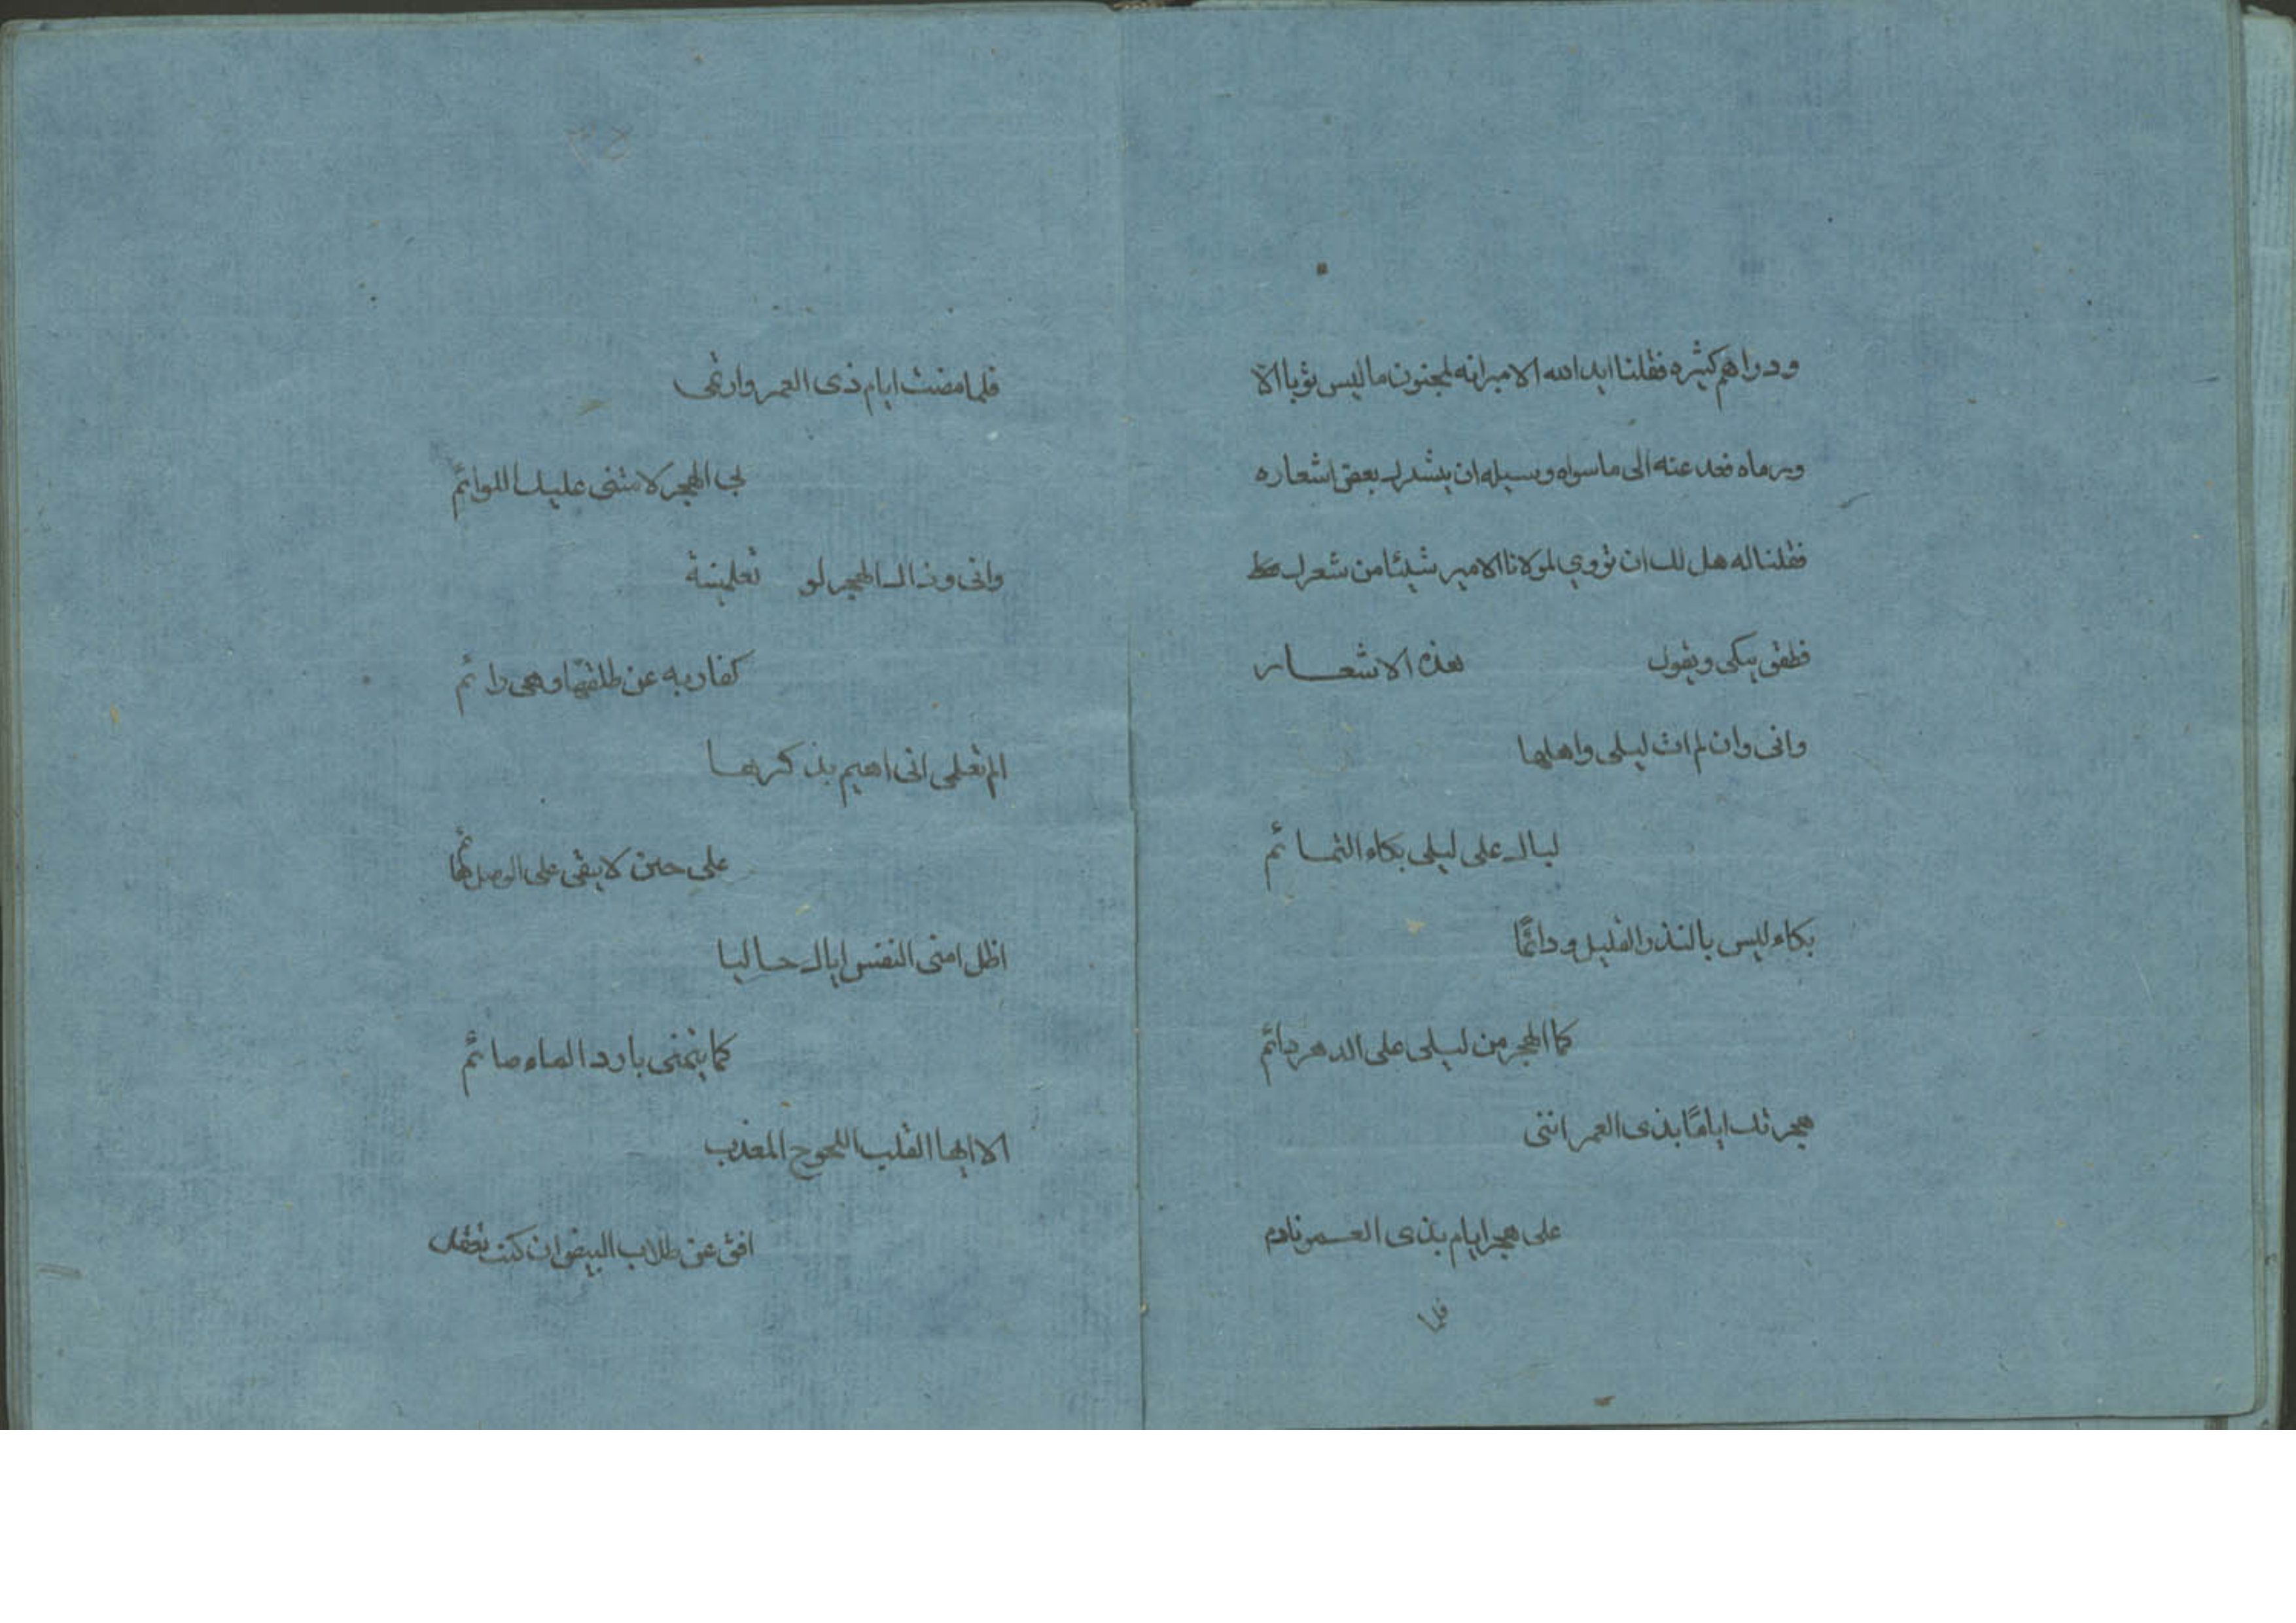 ودراهم كثيره فقلنا ايد الله الامير انه لمجنون ما لبس ثوبا الا
ورماه فخد عنه الى ما سواه وسيله ان ينشدك بعض اشعاره
فقلنا له هل لك ان تروي لمولانا الامير شيئا من شعرك
فطفق يبكي ويقول هذه الاشعار
وانى وان لم ات ليلى واهلها
لباك على ليلى بكاء التمائم
بكاء ليس بالنذر القليل ودائما
كما الهجر من ليلى على الدهر دائم
هجرتك اياما بذى العمر اننى
على هجر ايام بذى العمر نادم
فلما
٣٥
فلما مضت ايام ذى العمر وارتمى
بى الهجر لامتنى عليك اللوائم
وانى وذاك الهجر لو تعلمينة
كفاربه عن طلفها وهى رائم
الم تعلمى انى اهيم بذكرها
على حين لا يبقى على الوصل
اظل امنى النفس اياك خاليا
كما يتمنى بارد الماء صائم
الا ايها القلب اللجوج المعذب
افق عن طلاب البيض ان كنت تعقل